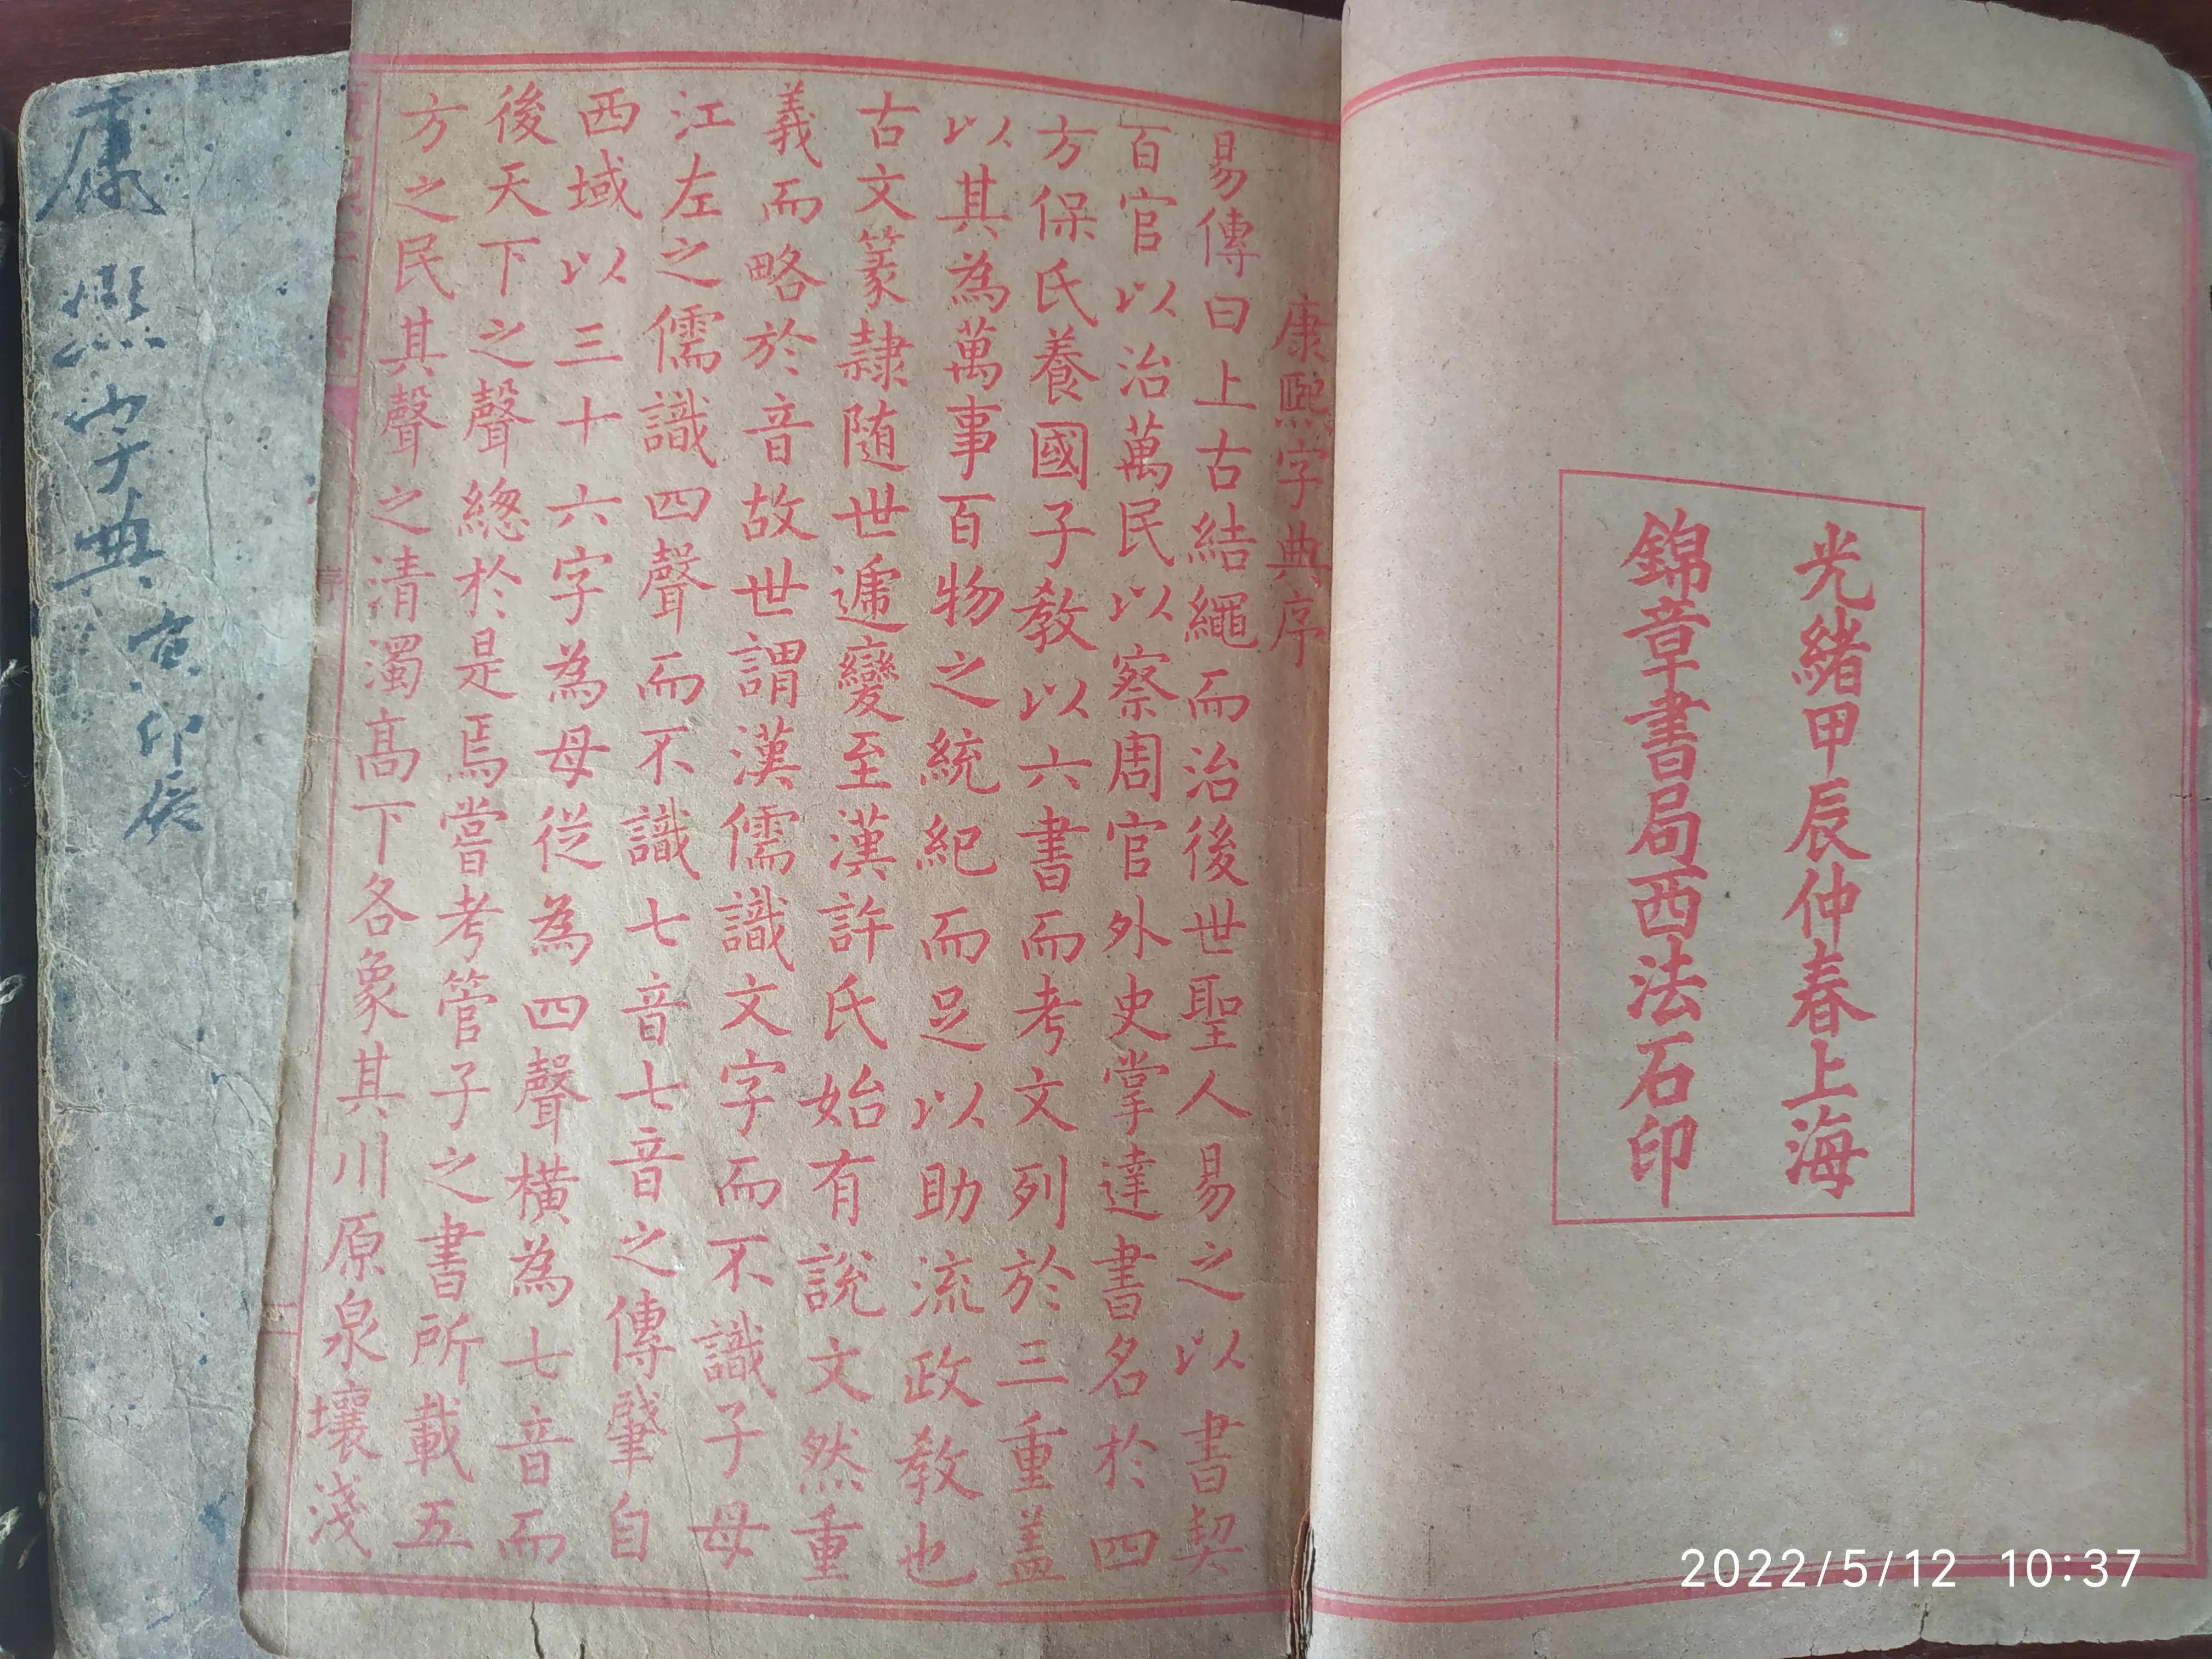 光緒甲辰仲春上海
錦章書局西法石印
康熙字典序
易傳曰上古結繩而治後世聖人易之以書契
百官以治萬民以察周官外史掌達書名於四
方保氏養國子教以六書而考文列於三重盖
以其為萬事百物之統紀而足以助流政教也
古文篆隸随世遞變至漢許氏始有說文然重
義而略於音故世謂漢儒識文字而不識子母
江左之儒識四聲而不識七音七音之傳肇自
西域以三十六字為母從為四聲橫為七音而
後天下之聲總於是焉嘗考管子之書所載五
方之民其聲之清濁高下各象其川原泉壤淺
序
康熙字典
2022/5/12 10:37